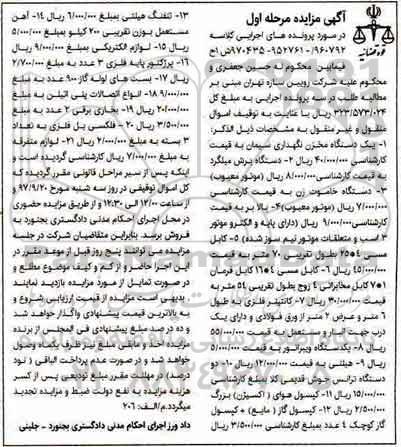 آگهی مزایده مرحله اول
در مورد پرونده های اجرایی کلاسه
۹۶۰۷۹۲- ۹۵۲۷۶۱- ۹۷۰۴۳۵ش اح
فیمابین محکوم له حسین جعفری و
محکوم علیه شرکت رویین سازه تهران مبنی بر
مطالبه طلب در سه پرونده اجرایی به مبلغ کل
۳۲۳/۵۷۳/۰۲۴ ریال با عنایت به توقیف اموال
منقول و غیر منقول به مشخصات ذیل الذکر:
۱- یک دستگاه مخزن نگهداری سیمان به قیمت
کارشناسی ۴۰/۰۰۰/۰۰۰ ریال ۲- دستگاه برش میلگرد
به قیمت کارشناسی ۸/۰۰۰/۰۰۰ ریال (موتور معیوب)
۳- دستگاه خاموت زن به قیمت کارشناسی
۷/۰۰۰/۰۰۰ ریال (موتور معیوب) ۴- بالا بر به قیمت
کارشناسی ۹/۰۰۰/۰۰۰ ریال (دارای پایه و الکترو موتور
۳ اسب و متعلقات موتور نیم سوز شده) ۵- کابل
مسی ۴*۲۵ بطول تقریبی ۷۰ متر به قیمت
۴۵/۰۰۰/۰۰۰ ریال ۶- کابل مسی ۴*۱۶ کابل فرمان
۱*۷ کابل مخابراتی ۴ زوج بطول تقریبی ۵۴ متر به
قیمت ۳۰/۰۰۰/۰۰۰ ریال ۷- کانتینر فلزی به طول
۶ متر و عرض ۲ متر از ورق فولادی و دارای یک
درب جهت انبار و مستعمل به قیمت ۵۵/۰۰۰/۰۰۰
ریال ۸- یکدستگاه ویبراتور به قیمت ۵/۰۰۰/۰۰۰
ریال ۹- هیلتی به قیمت ۱۲/۰۰۰/۰۰۰ ریال ۱۰- دو
دستگاه ترانس جوش قدیمی کلا بمبلغ کارشناسی
۱۵/۰۰۰/۰۰۰ ریال ۱۱- کپسول هوای (اکسیژن) بزرگ
۲/۵۰۰/۰۰۰ ریال ۱۲- کپسول گاز (مایع) + کپسول
گاز کوچک ۴ عدد بمبلغ کارشناسی ۳/۵۰۰/۰۰۰ ریال
۱۳- تفنگ هیلتی بمبلغ ۶/۰۰۰/۰۰۰ ریال ۱۴- آهن
مستعمل بوزن تقریبی ۲۰۰ کیلو بمبلغ ۵/۰۰۰/۰۰۰
ریال ۱۵- لوازم الکتریکی بمبلغ ۹/۰۰۰/۰۰۰ ریال
۱۶- پرژکتور پایه فلزی ۳ عدد به مبلغ ۲/۷۰۰/۰۰۰
ریال ۱۷- بست های لوله گاز ۹۰۰ عدد به مبلغ
۹/۰۰۰/۰۰۰ ۱۸- انواع اتصالات پلی اتیلن به مبلغ
۲۰/۰۰۰/۰۰۰ ریال ۱۹- بخاری برقی ۲ عدد به مبلغ
۳/۵۰۰/۰۰۰ ریال ۲۰- فلکسی بل فلزی به تعداد
۳ بسته به مبلغ ۲/۰۰۰/۰۰۰ ریال ۲۱- لوازم متفرقه
به مبلغ ۷/۰۰۰/۰۰۰ ریال کارشناسی گردیده است و
اینکه پس از سیر مراحل قانونی مقرر گردیده که
کل اموال توقیفی در روز سه شنبه مورخ ۹۷/۹/۲۰
از ساعت ۱۲/۰۰ الی ۱۲:۳۰ و از طریق مزایده حضوری
در محل اجرای احکام مدنی دادگستری بجنورد به
فروش برسد. بنابراین متقاضیان شرکت در جلسه
مزایده می توانند پنج روز قبل از موعد مقرر در
این اجرا حاضر و از کم و کیف موضوع مطلع و
در صورت تمایل از مورد مزایده بازدید نمایند
بدیهی است مزایده از قیمت ارزیابی شروع و
به بالاترین قیمت پیشنهادی واگذار خواهد شد
و ده درصد مبلغ پیشنهادی فی المجلس از برنده
مزایده اخذ و مابقی مبلغ نیز ظرف یکماه وصول
خواهد شد و در صورت عدم پرداخت الباقی (نود
درصد) در مهلت مقرر مبلغ تودیعی پس از کسر
هزینه مزایده به نفع دولت ضبط و مزایده تجدید
میگردد.م/الف: ۲۰۶
داد ورز اجرای احکام مدنی دادگستری بجنورد - جلینی